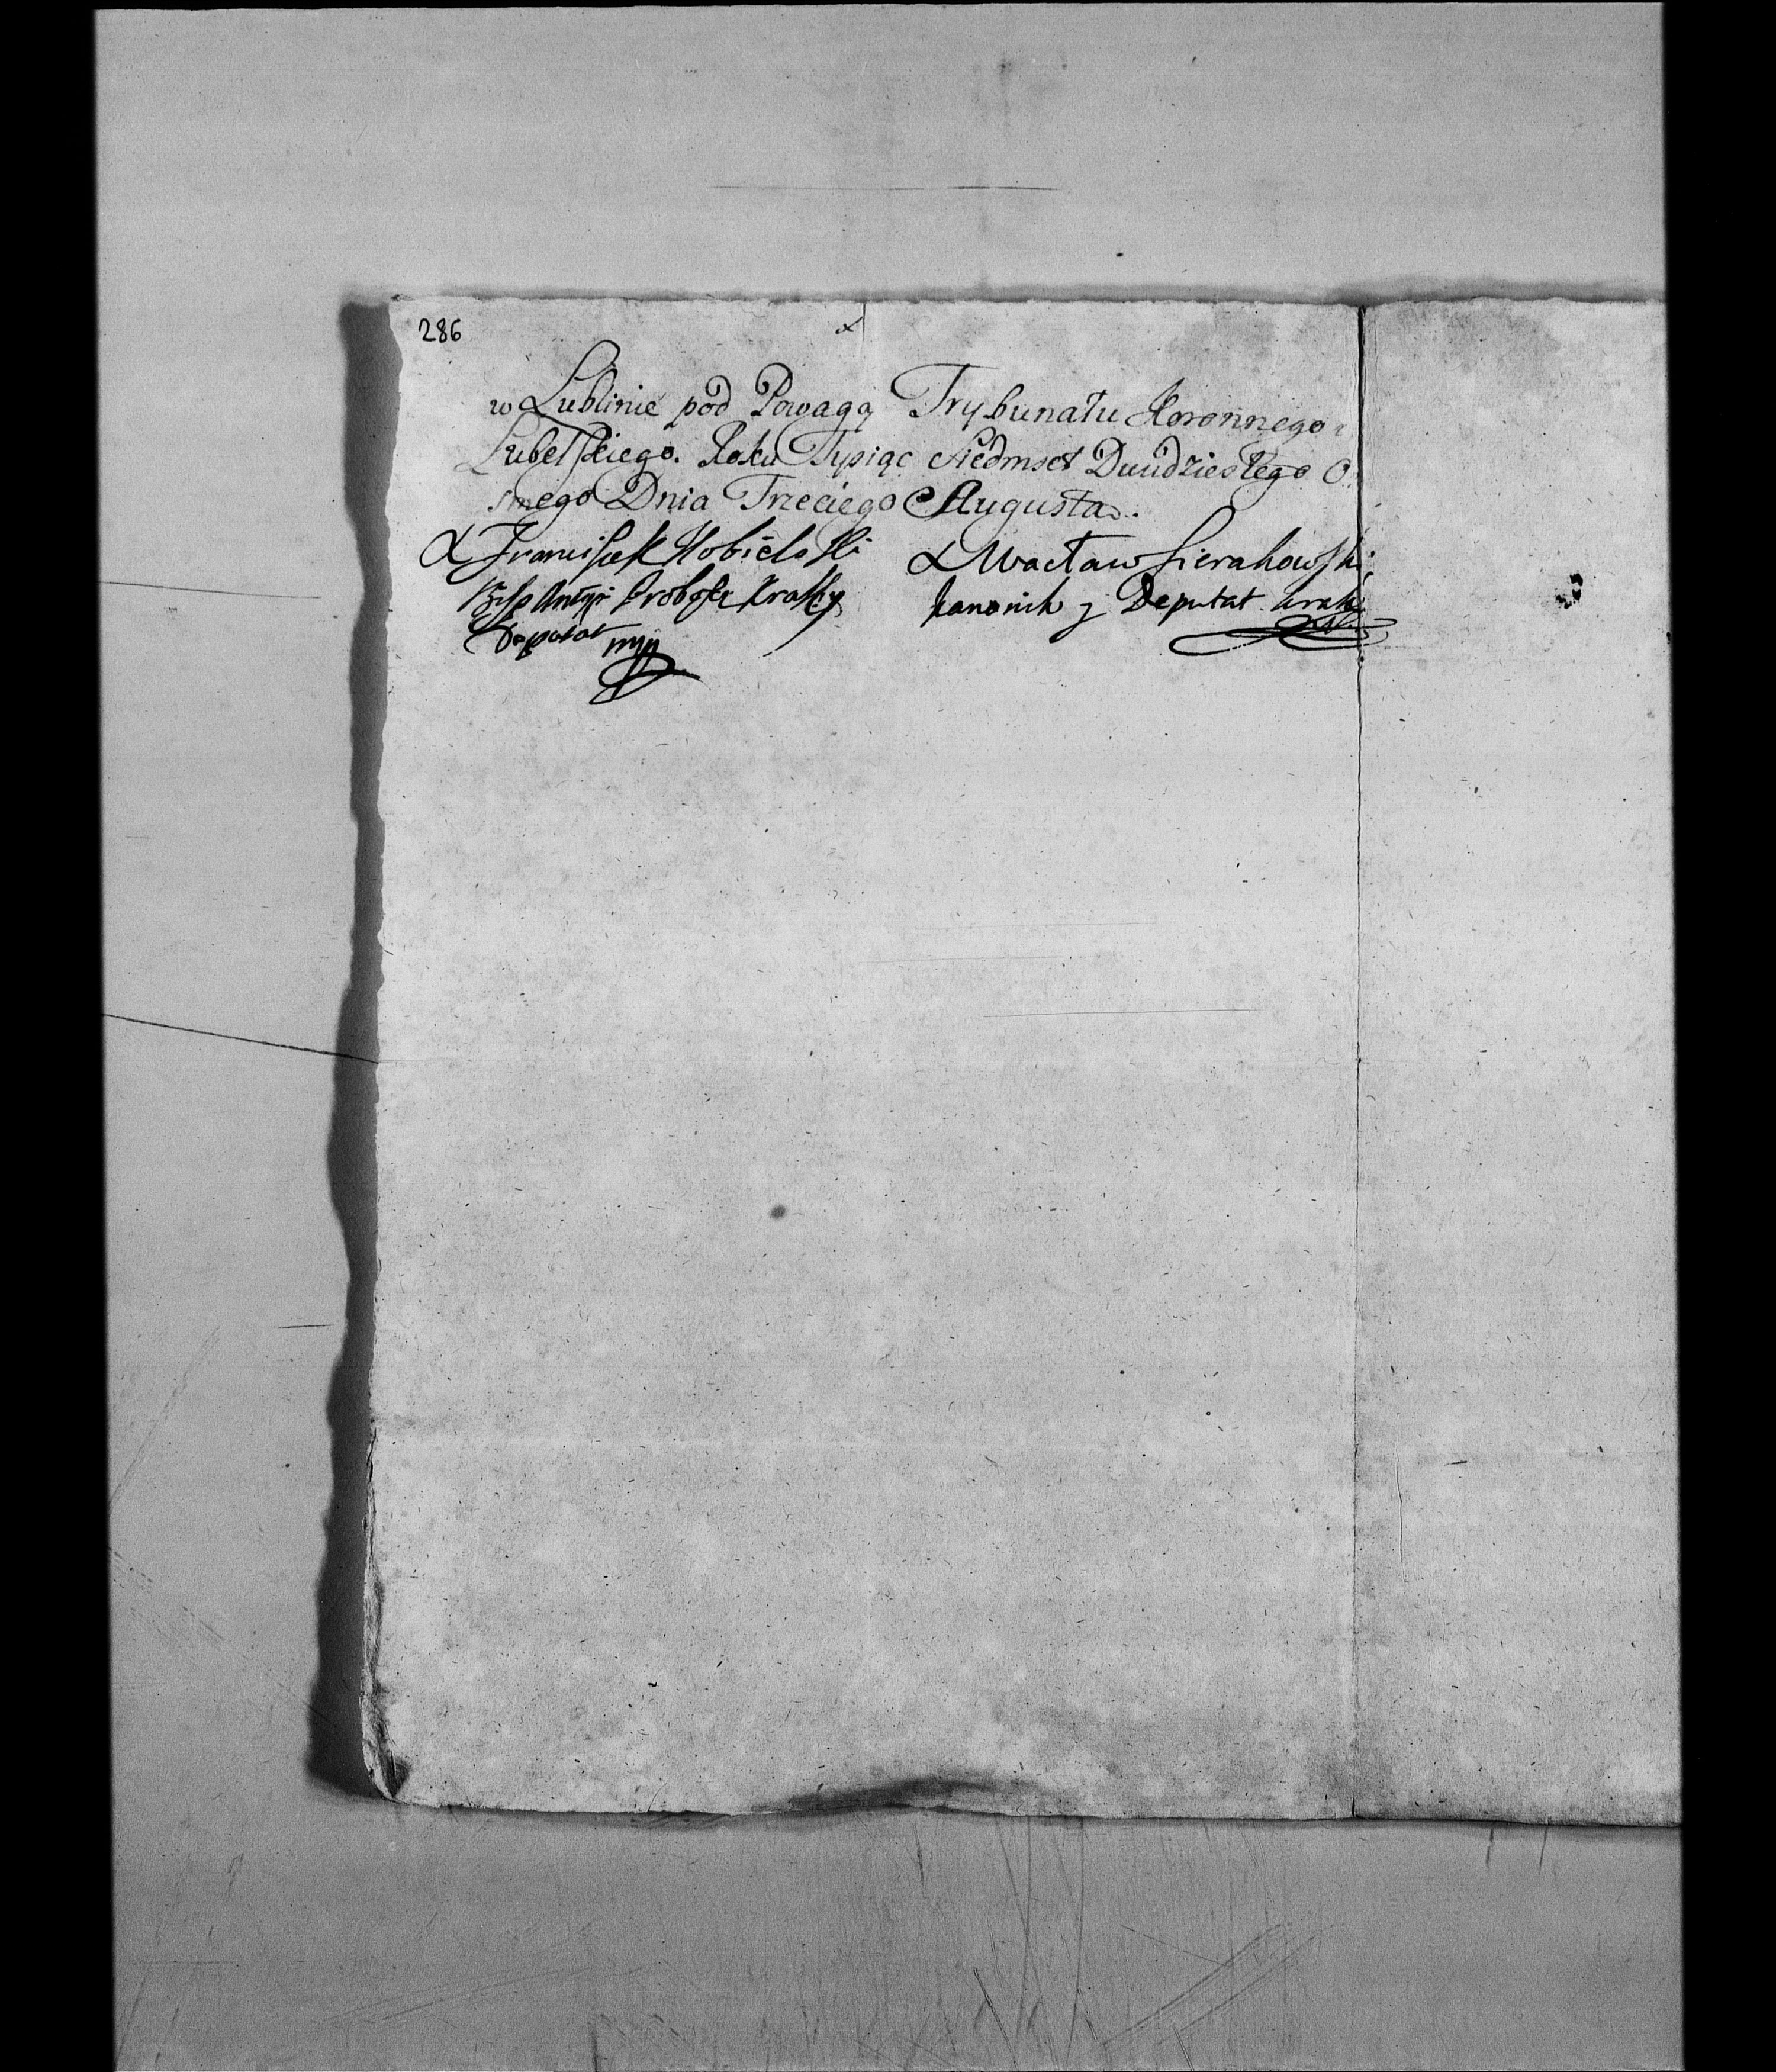 286
w Lublinie pod Powagą Trybunału Koronnego
Lubelskiego. Roku Tysiąc Siedmset Dwudziestego O
smego Dnia Trzeciego Augusta
X Franciszek Kobielski
Bisp Proboszcz Krakky
Deputat mpp
X Wacław Sierakowski
kanonik j Deputat krak